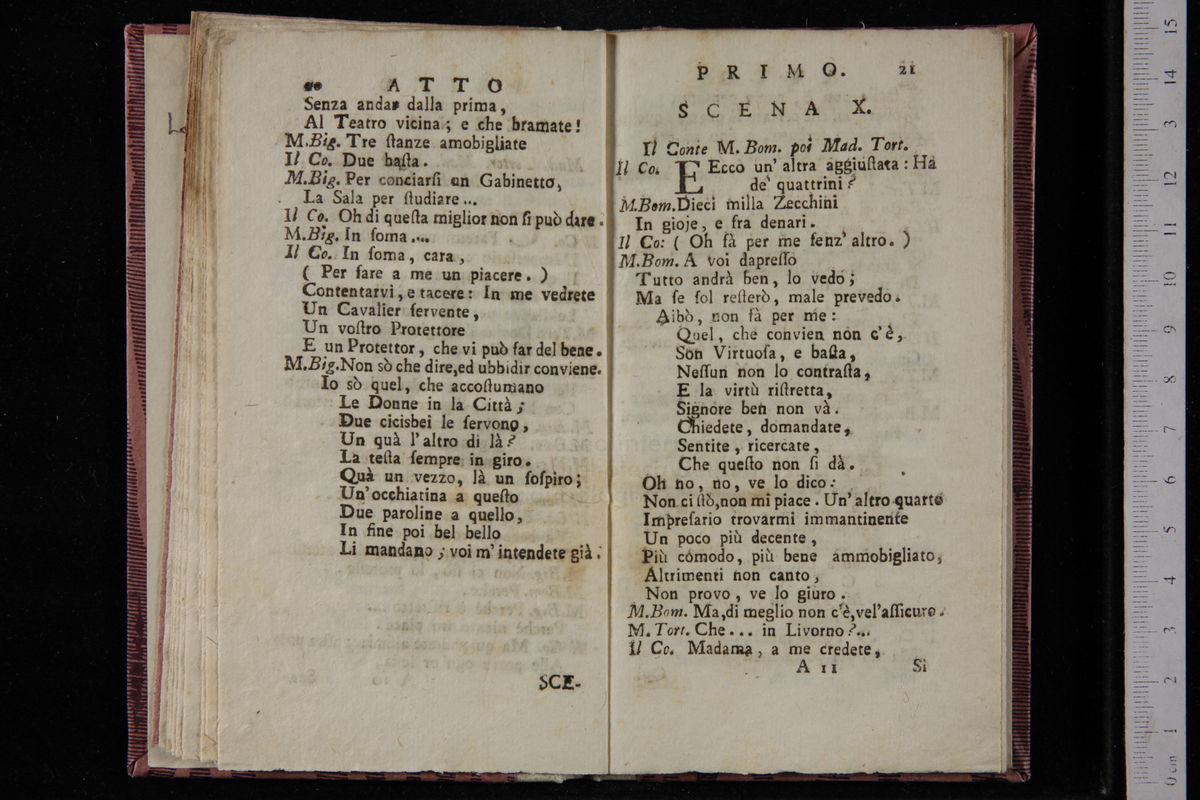 ATTO
Senza andar dalla prima,
Al Teatro vicina; e che bramate!
M.Big. Tre ſtanze amobigliate
Il Co. Due baſta.
M.Big. Per conciarſi un Gabinetto,
La Sala per ſtudiare...
Il Co. Oh di queſta miglior non ſi può dare.
M.Big. In ſoma....
Il Co. In ſoma, cara,
( Per fare a me un piacere. )
Contentarvi, e tacere: In me vedrete
Un Cavalier fervente,
Un voſtro Protettore
E un Protettor, che vi può far del bene.
M.Big. Non sò che dire, ed ubbidir conviene.
Io sò quel, che accoſtumano
Le Donne in la Città;
Due cicisbei le ſervono,
Un quà l'altro di là?
La teſta ſempre in giro.
Quà un vezzo, là un ſoſpiro;
Un'occhiatina a queſto
Due paroline a quello,
In fine poi bel bello
Li mandano; voi m'intendete già.
SCE-
PRIMO. 21
SCENA X.
Il Conte M. Bom. poi Mad. Tort.
Il Co. E Ecco un' altra aggiuſtata: Ha
de' quattrini?
M.Bom. Dieci milla Zecchini
In gioje, e fra denari.
Il Co: ( Oh fà per me ſenz' altro. )
M.Bom. A voi dapreſſo
Tutto andrà ben, lo vedo;
Ma ſe ſol reſterò, male prevedo.
Aibò, non fà per me:
Quel, che convien non c'è,
Son Virtuoſa, e baſta,
Neſſun non lo contraſta,
E la virtù riſtretta,
Signore ben non và.
Chiedete, domandate,
Sentite, ricercate,
Che queſto non ſi dà.
Oh no, no, ve lo dico:
Non ci ſtò, non mi piace. Un' altro quarto
Impreſario trovarmi immantinente
Un poco più decente,
Più còmodo, più bene ammobigliato,
Altrimenti non canto,
Non provo, ve lo giuro.
M.Bom. Ma, di meglio non c'è, vel'aſſicuro.
M. Tort. Che... in Livorno?...
Il Co. Madama, a me credete,
A 11 Sì